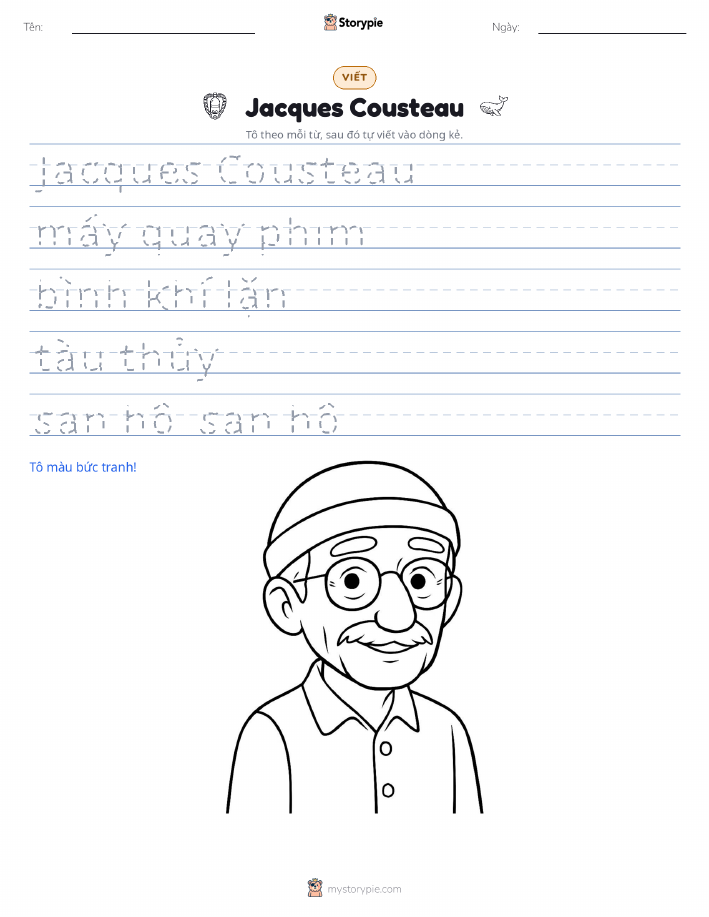 Tên:
Storypie
Ngày:
VIẾT
Jacques Cousteau
Tô theo mỗi từ, sau đó tự viết vào dòng kẻ.
Jacques Cousteau
mấy quay phim
bình khí lặn
tàu thủy
san hô san hô
Tô màu bức tranh!
mystorypie.com